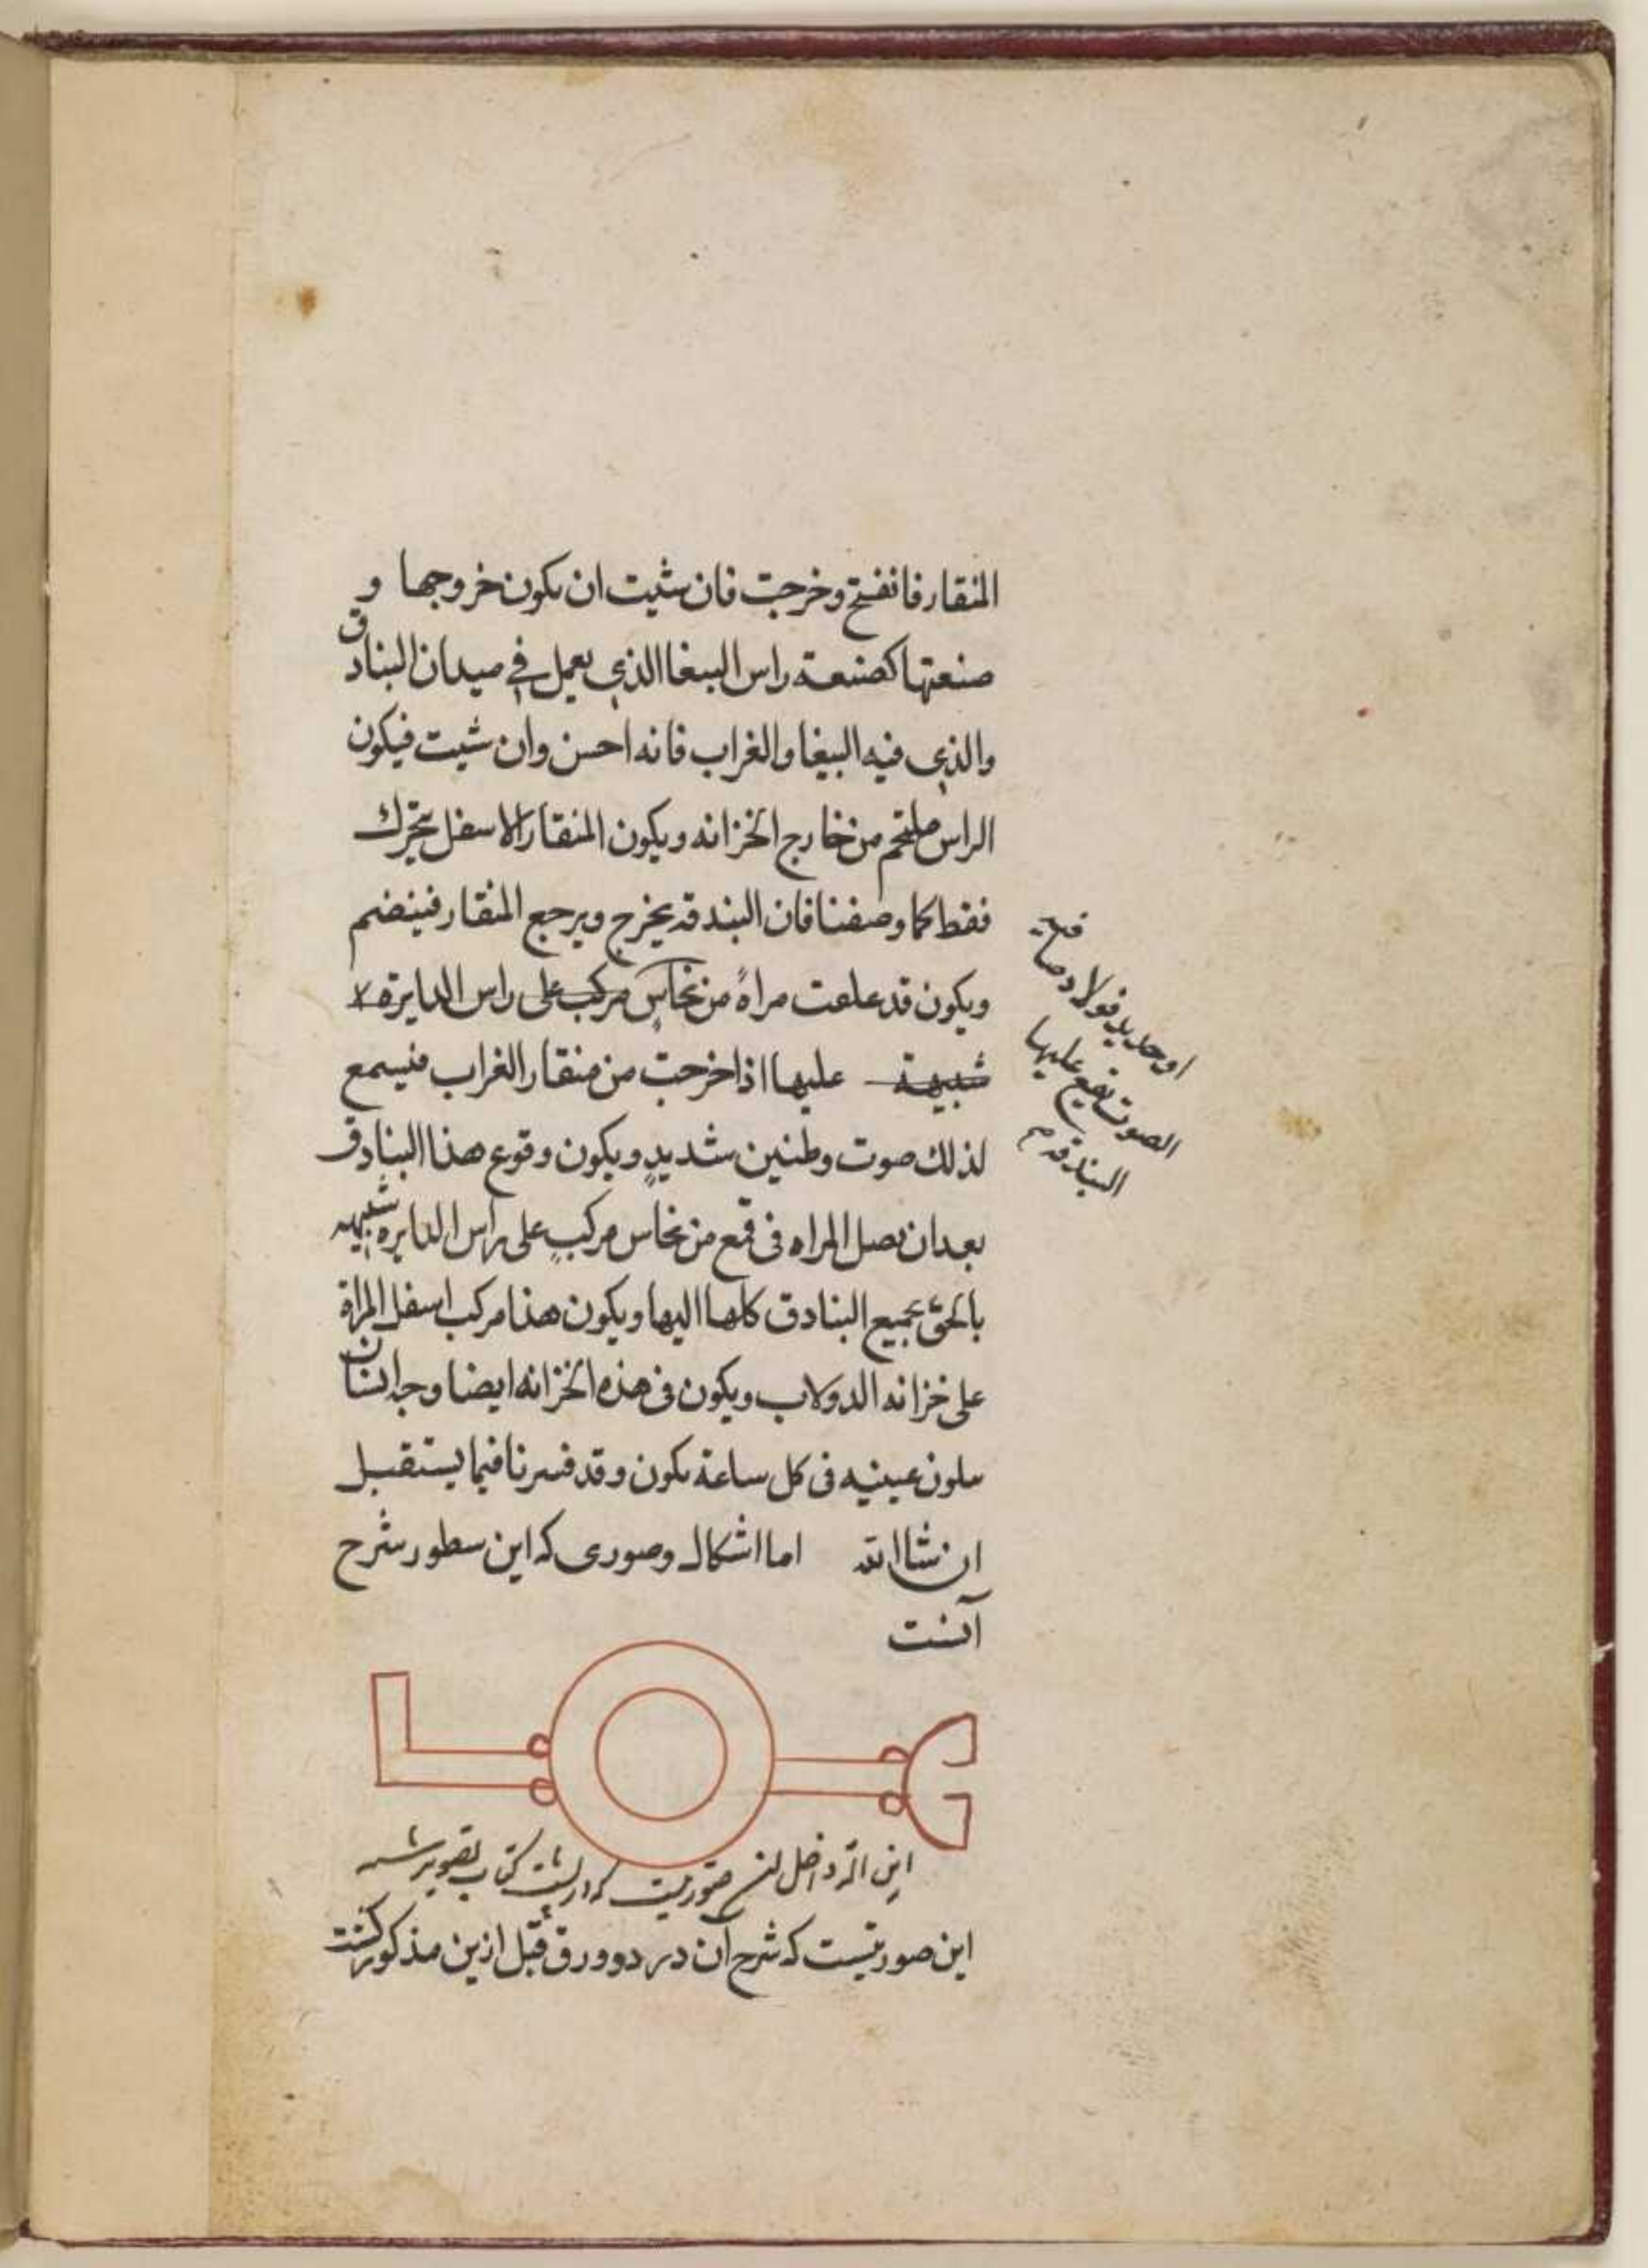 المنقار فانفتح وخرجت فان شيت ان يكون خروجها و
صنعتها كصنعة راس الببغا الذي يعمل في ميدان البنادق
والذي فيه الببغا والغراب فانه احسن وان شيت فيكون
الراس ملتحم من خارج الخزانه ويكون المنقار الاسفل يتحرك
فقط كما وصفنا فان البندقه يخرج ويرجع المنقار فينضم
ويكون قد علمت مراة من نحاس مركب على راس الدايرة
شبيهة عليها اذا خرجت من منقار الغراب فيسمع
لذلك صوت وطنين شديد ويكون وقوع هذا البنادق
بعد ان تصل المراه في قمع من نحاس مركب على راس الدايره شبيه
بالحق بجميع البنادق كلها اليها ويكون هذا مركب اسفل المراة
على خزانه الدولاب ويكون في هذه الخزانه ايضا وجه انسان
يتلون عينيه في كل ساعة يكون وقد فسرنا فيما يستقبل
ان شا الله اما اشكال وصورى كه اين سطور شرح
آنست
او حديد فولاد
الصوت تقع عليها
البندقه
اين صورتيست كه شرح آن در دو ورق قبل ازين مذكور كشت